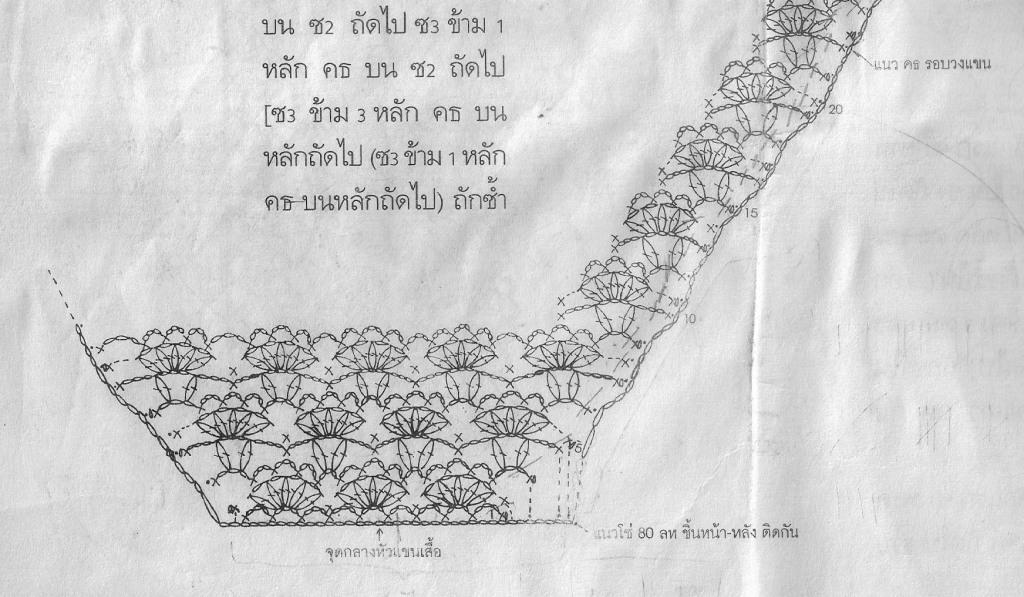 บน ซ2 ถัดไป ซ3 ข้าม 1
หลัก คธ บน ซ2 ถัดไป
[ซ3 ข้าม 3 หลัก คธ บน
หลักถัดไป (ซ3 ข้าม 1 หลัก
คธ บนหลักถัดไป) ถักซ้ำ
แนว คธ รอบวงแขน
20
15
10
5
แนวโซ่ 80 ลห ชิ้นหน้า-หลัง ติดกัน
จุดกลางหัวแขนเสื้อ